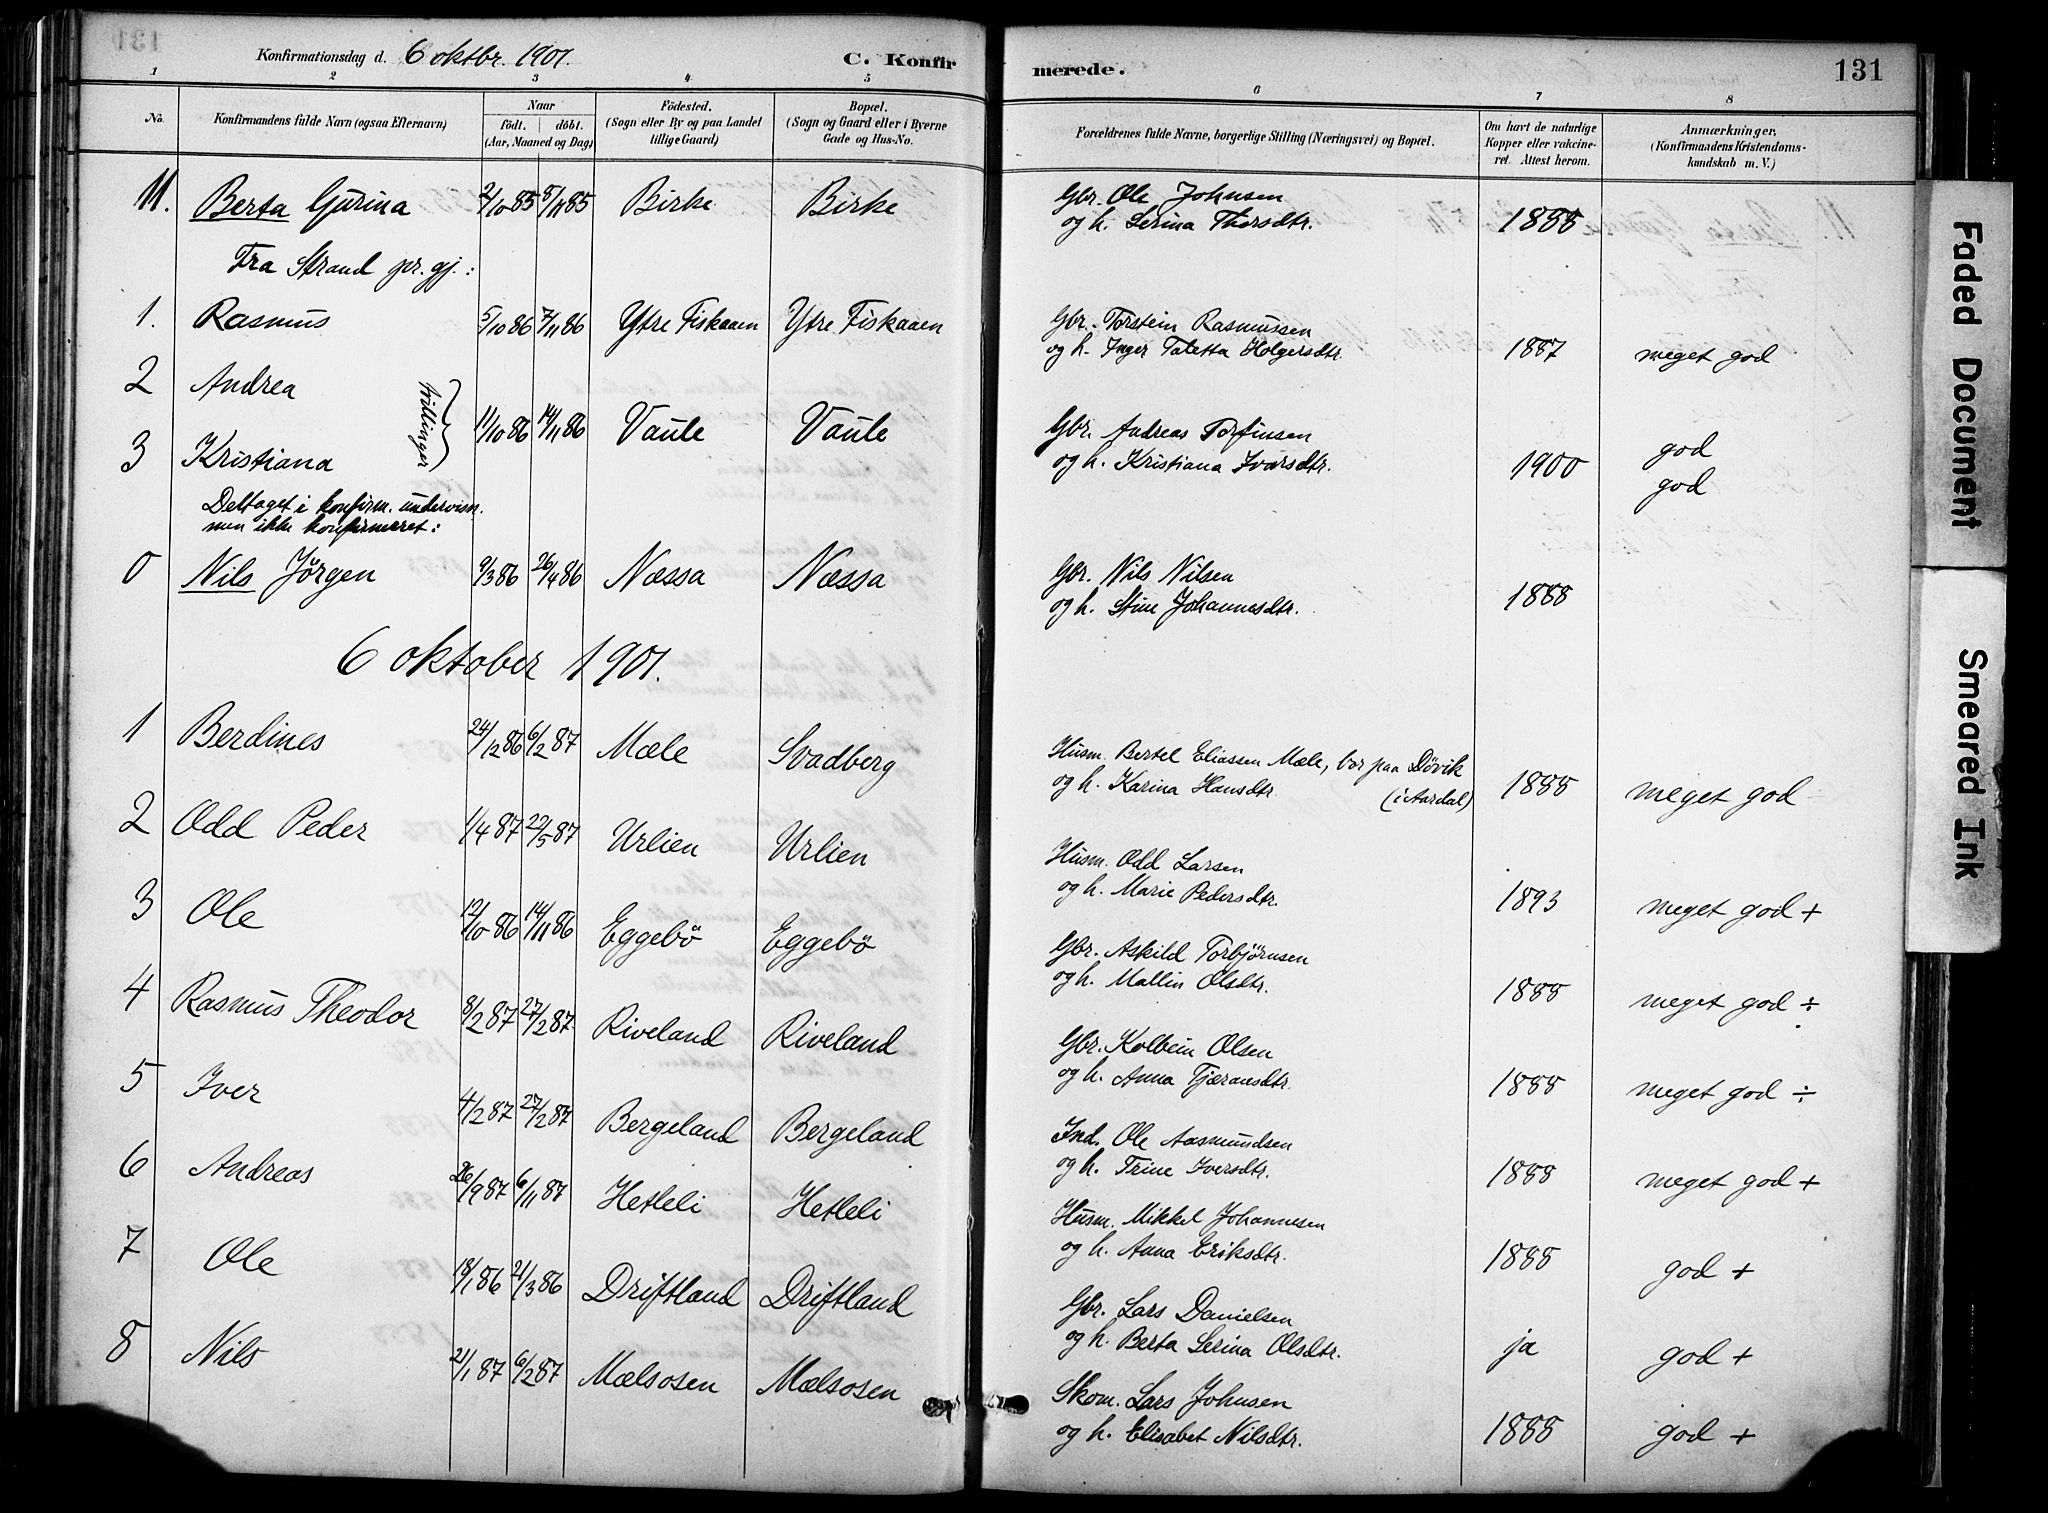 Konfirmationsdag d. 6 oktbr. 1901. C. Konfirmerede. 131
1 2 3 4 5 6 7 8
No. Konfirmandens fulde Navn (ogsaa Efternavn) Naar födt. döbt. (Aar, Maaned og Dag) Födested. (Sogn eller By og paa Landet tillige Gaard) Bopæl. (Sogn og Gaard eller i Byerne Gade og Hus-No. Forældrenes fulde Navne, borgerlige Stilling (Næringsvei) og Bopæl. Om havt de naturlige Kopper eller vakcineret. Attest herom. Anmærkninger. (Konfirmandens Kristendomskundskab m. V.)
11. Berta Gurina 2/10 85 8/11 85 Birke Birke Gbr. Ole Johnsen
og h. Serina Thorsdtr. 1888
Fra Strand pr. gj.:
1. Rasmus 5/10 86 7/11 86 Ytre Fiskaaen Ytre Fiskaaen Gbr. Torstein Rasmussen
og h. Inger Taletta Holgersdtr. 1887 meget god
2 Andrea
3 Kristiana tvillinger 11/10 86 14/11 86 Vaule Vaule Gbr. Andreas Torfinsen
og h. Kristiana Ivarsdtr. 1900 god
god
Deltaget i konfirm. undervisn.
men ikke konfirmeret:
0 Nils Jörgen 9/3 86 26/4 86 Næssa Næssa Gbr. Nils Nilsen
og h. Stine Johannesdtr. 1888
6 oktober 1901.
1 Berdines 24/12 86 6/2 87 Mæle Svadberg Husm. Bertel Eliassen Mæle, bor paa Dövik
og h. Karina Hansdtr. (i Aardal) 1888 meget god
2 Odd Peder 1/4 87 22/5 87 Urlien Urlien Husm. Odd Larsen
og h. Marie Pedersdtr. 1893 meget god +
3 Ole 12/10 86 14/11 86 Eggebö Eggebö Gbr. Askild Torbjörnsen
og h. Mallin Olsdtr. 1888 meget god ÷
4 Rasmus Theodor 8/2 87 27/2 87 Riveland Riveland Gbr. Kolbein Olsen
og h. Anna Tjæransdtr. 1888 meget god ÷
5 Iver 4/2 87 27/2 87 Bergeland Bergeland Ind. Ole Aasmundsen
og h. Trine Iversdtr. 1888 meget god +
6 Andreas 26/9 87 6/11 87 Hetleli Hetleli Husm. Mikkel Johannesen
og h. Anna Eriksdtr. 1888 god +
7 Ole 18/1 86 21/3 86 Driftland Driftland Gbr. Lars Danielsen
og h. Berta Serina Olsdtr. ja god +
8 Nils 21/1 87 6/2 87 Mælsosen Mælsosen Skom. Lars Johnsen
og h. Elisabet Nilsdtr. 1888 god +
Faded Document
Smeared Ink